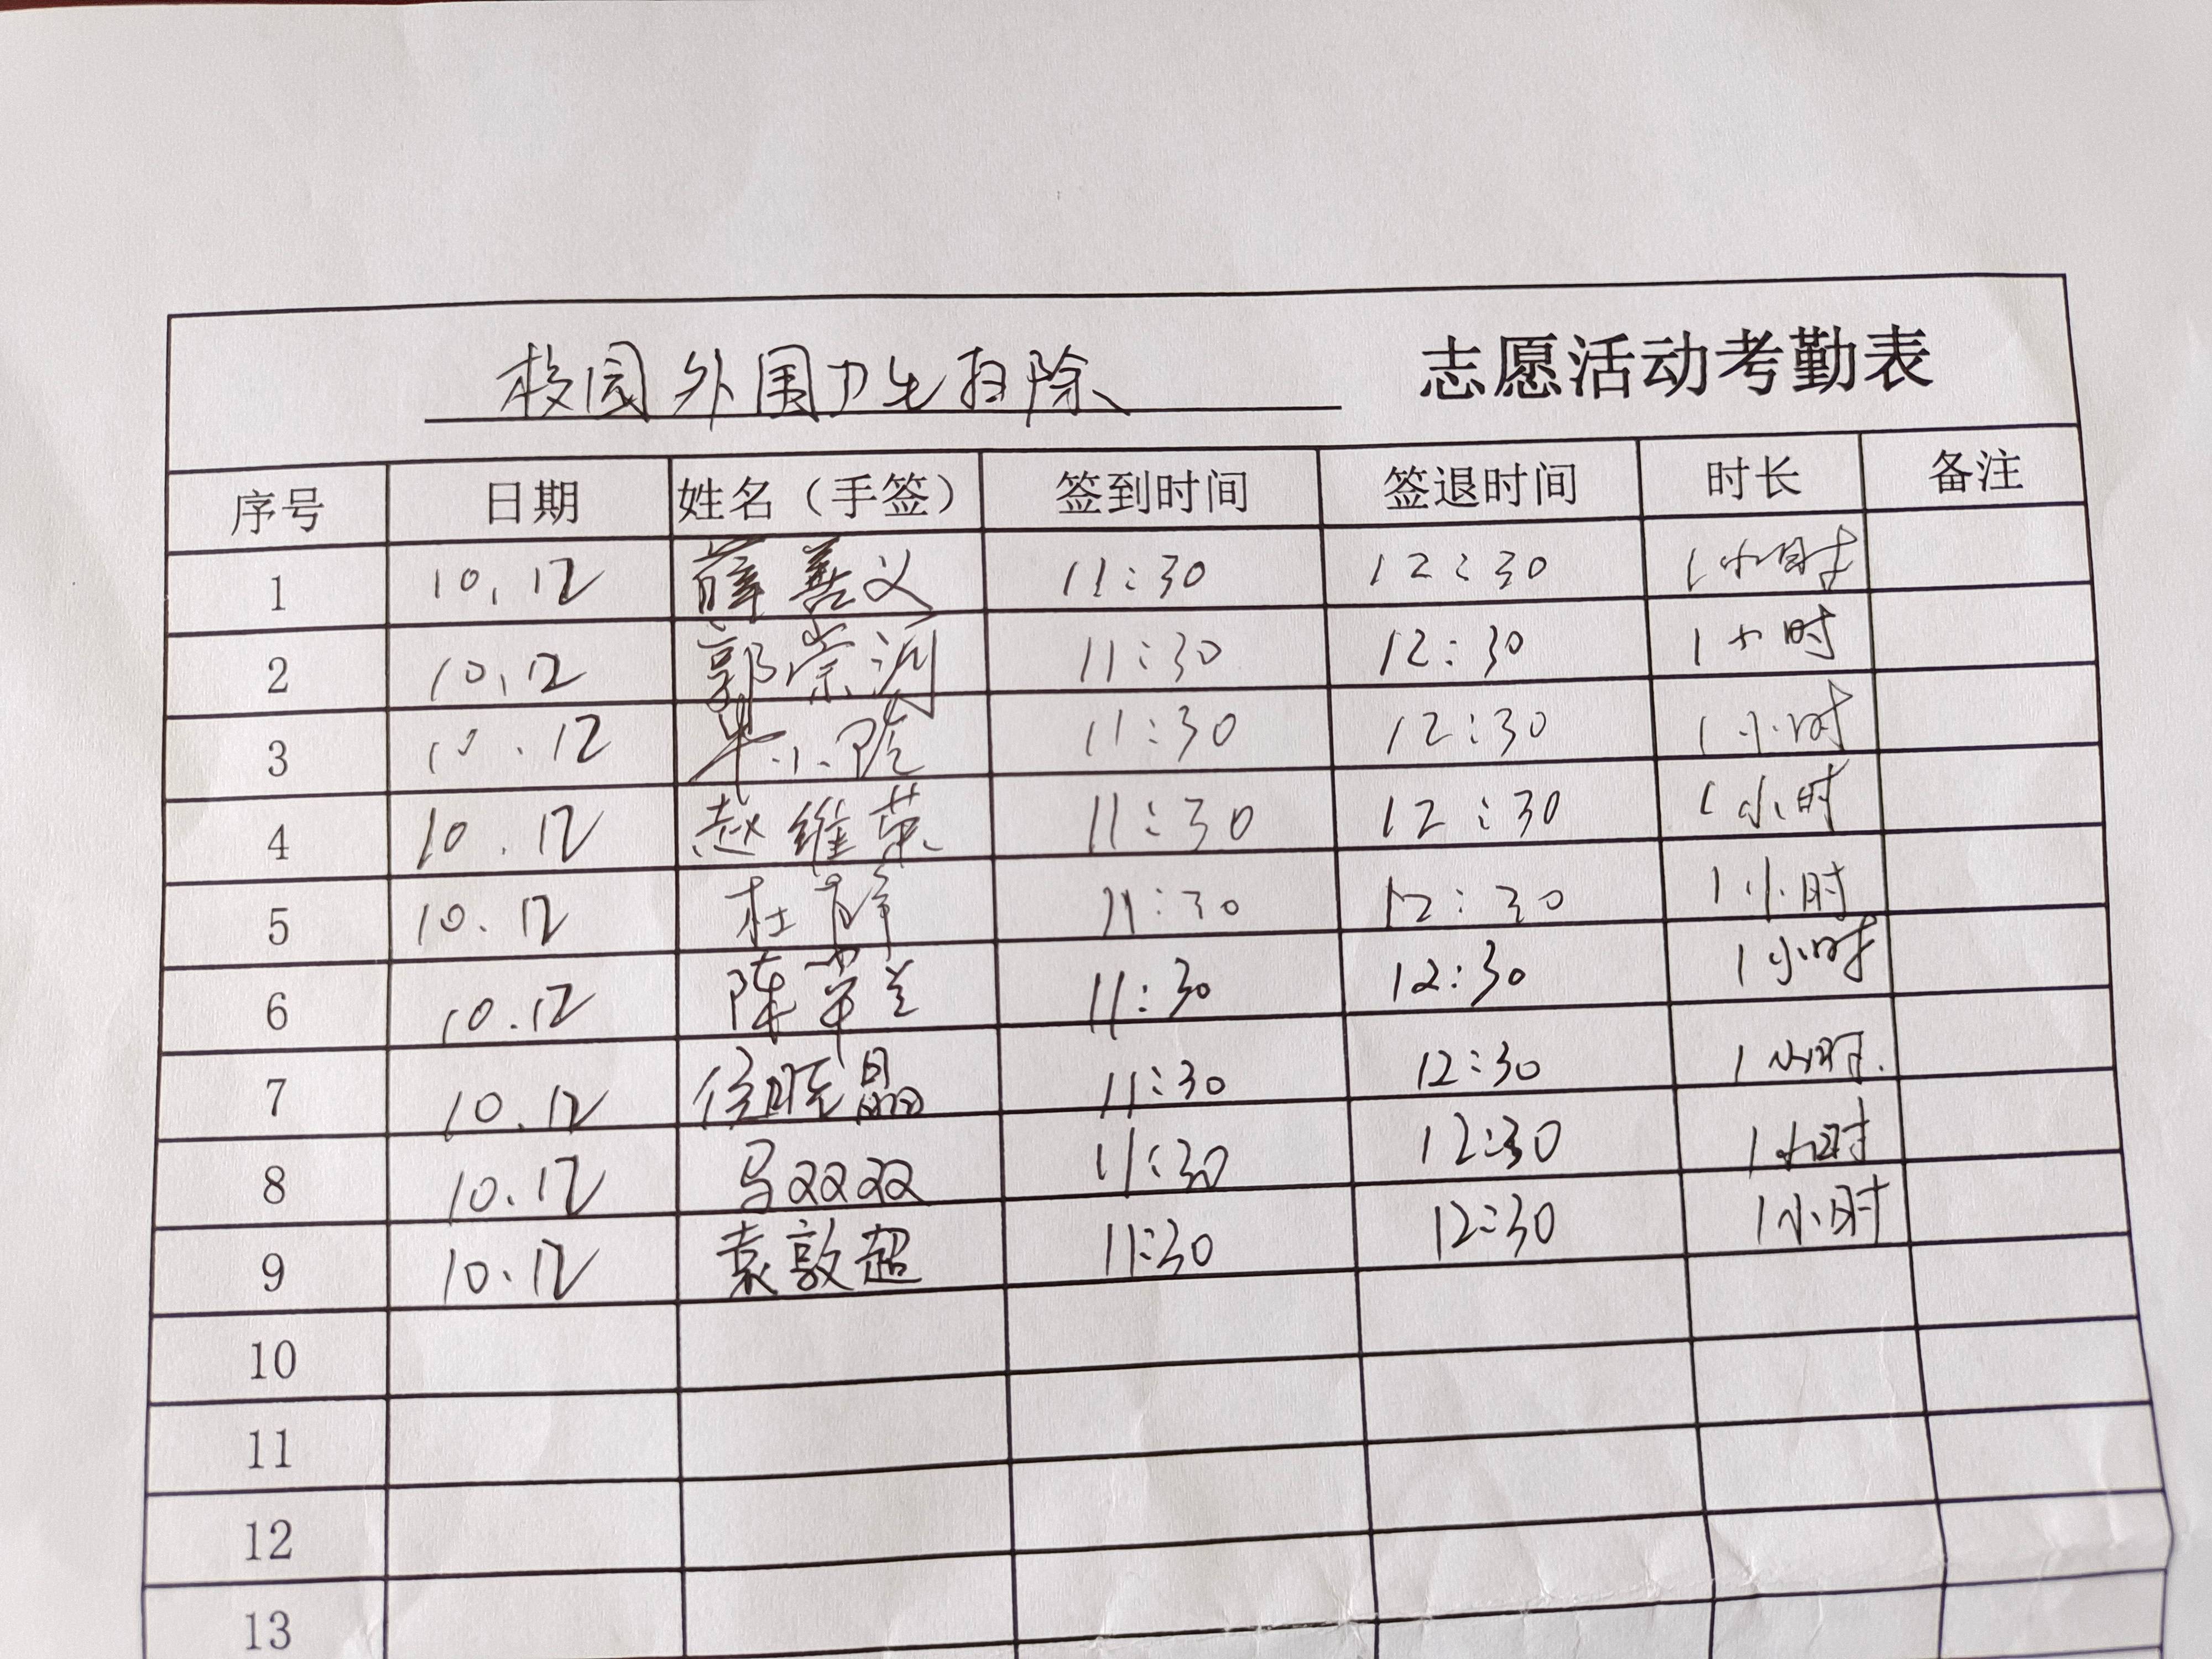 校园外围卫生扫除 志愿活动考勤表
序号 日期 姓名（手签） 签到时间 签退时间 时长 备注
1 10.12 薛善义 11:30 12:30 1小时
2 10.12 郭崇训 11:30 12:30 1小时
3 10.12 牛小 11:30 12:30 1小时
4 10.12 赵维荣 11:30 12:30 1小时
5 10.12 杜 11:30 12:30 1小时
6 10.12 陈 兰 11:30 12:30 1小时
7 10.12 侯晓晶 11:30 12:30 1小时.
8 10.12 马双双 11:30 12:30 1小时
9 10.12 袁敦超 11:30 12:30 1小时
10
11
12
13